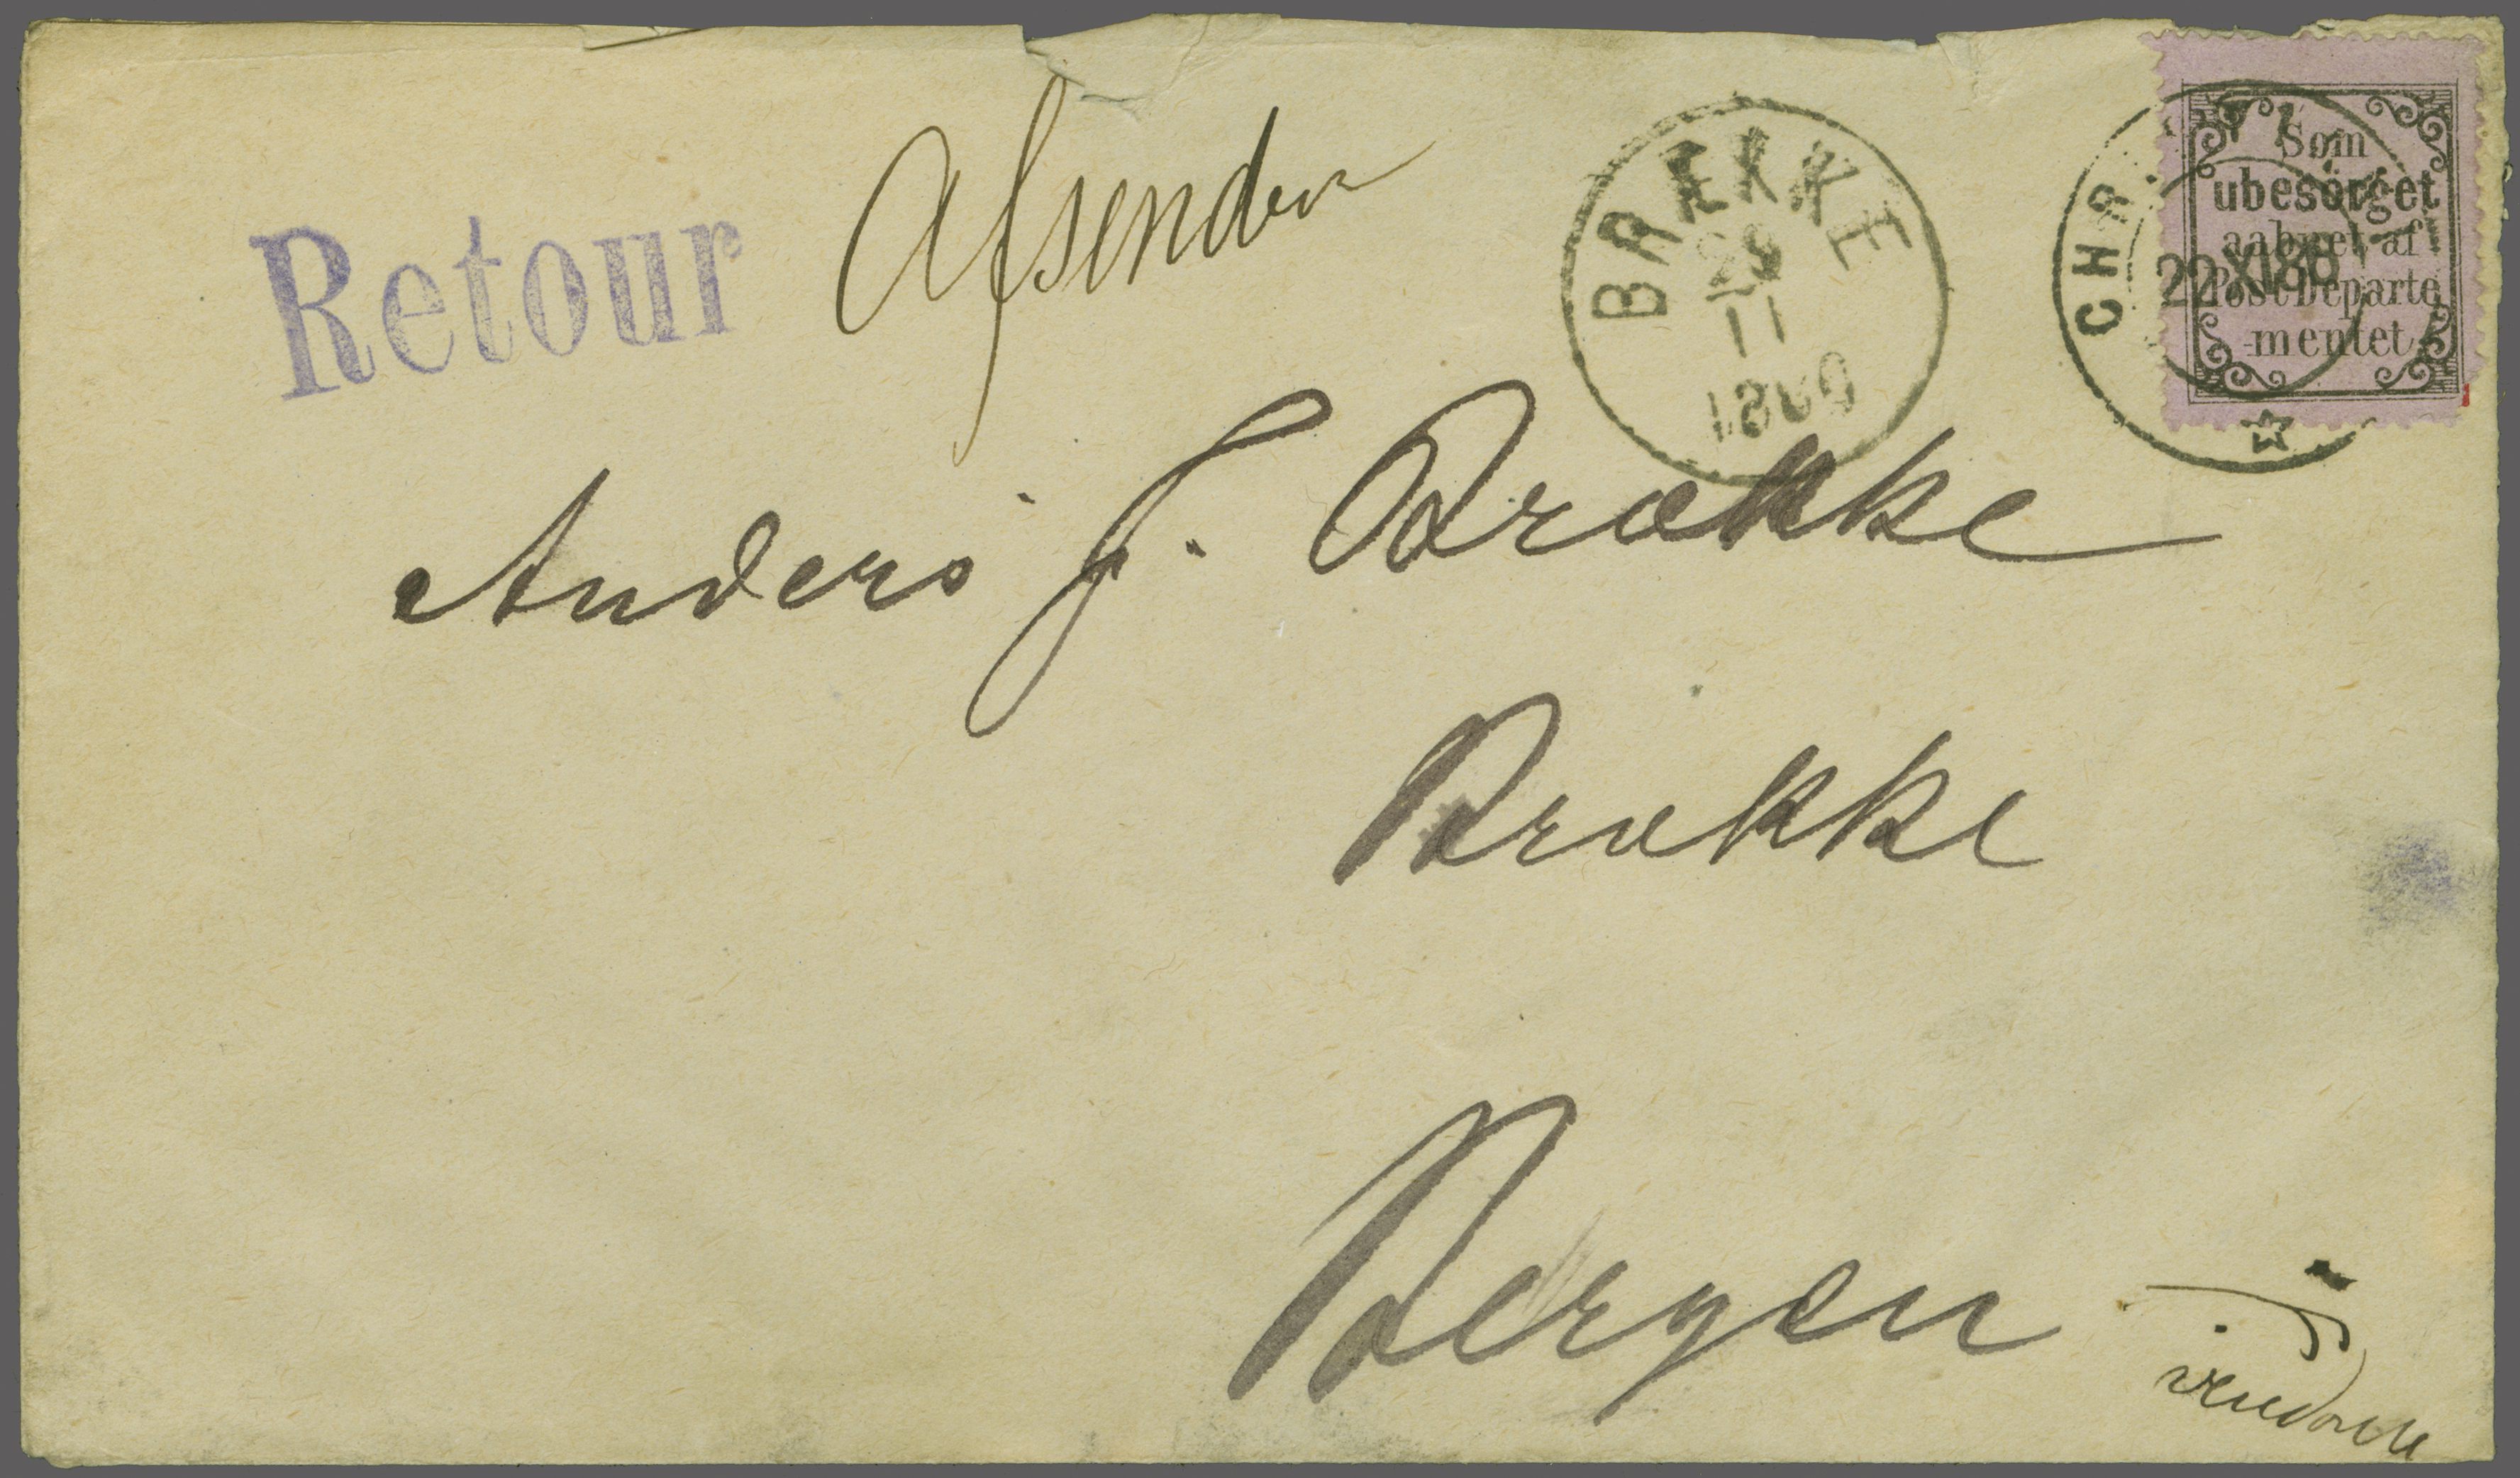 Retour
Afsender
BRÆKKE
29
11
1880
CHR
22 XI 8
Som
ubesörget
aabnet af
Postdeparte
-mentet
Anders J. Brække
Brække
Bergen